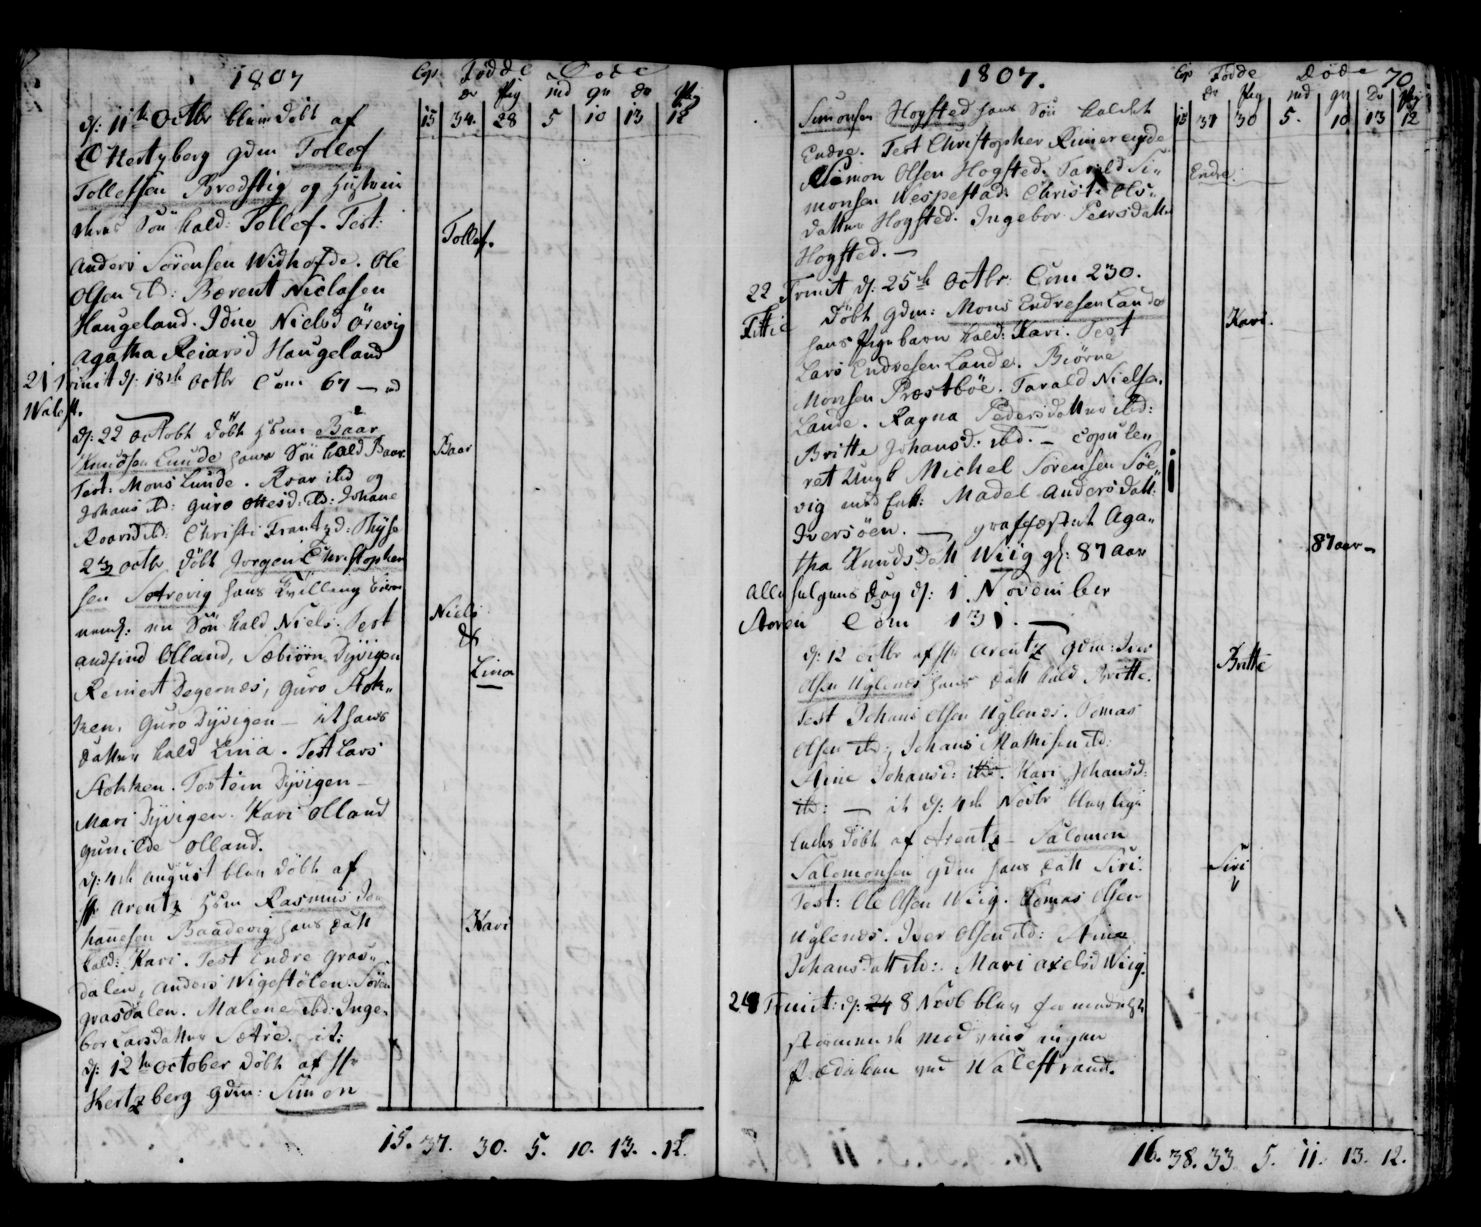 1807
Cop Fødde Døde
dr Pig md qv dr Pig
15 34. 28 5 10 13 12
d: 11te Octbr blev døbt af
Hertzberg gdm Tollef
Tollefsen Bredstig og Hustrui
deres Søn kald: Tollef. Test:
Anders Sørensen Widhofde. Ole
Olsen ibd: Bærent Niclasen
Haugeland. Idne Nielsd Örevig
Agatha Reiarsd Haugeland
Tollef.
21 Trinit d: 18de Octbr Com 67
d: 22 Octobr døbt Hsm Baar
Knudsen Lunde hans Søn kald Baar
Test: Mons Lunde. Roar ibd og
Johans ibd: Guro Ottesd: ibd: Johane
Roarsd ibd: Christi Frantzd:
Baar
octbr døbt Jorgen Christophersen
Sætrevig hans Tvilling børn
nemk: en Søn kald Niels. Test
Andfind Olland, Sæbiörn Dyvigen
Reinert Degernes, Guro Stokken,
Guro Dyvigen — it hans
datter kald Lina. Test Lars
Stokken. Tostein Dyvigen —
Mari Dyvigen. Kari Olland
Gunilde Olland.
Niels
&
Lina
d: 4de August blev døbt af
Hr Arentz Hsm Rasmus Johannesen
Baadevig hans datt
kald: Kari. Test Endre Grasdalen,
Anders Wigestölen. Sören
Grasdalen. Malene ibd: Ingebor
Larsdatter Sætre. it:
Kari
d: 12te October døbt af Hr
Hertzberg gdm: Simon
15. 37. 30. 5. 10. 13. 12.
1807. 70
Cop Fødde Døde
dr Pig md qv dr Pig
15 37 30 5. 10 13 12
Simonsen Hogsted hans Søn kaldet
Endre. Test Christopher Rimereide
Simon Olsen Hogsted. Tarald Simonsen
Wespestad. Christi Olsdatter
Hogsted. Ingebor Peersdatter
Hogsted. —
Endre:
22 Trinit d: 25de Octbr: Com 230.
Fittie døbt gdm: Mons Endresen Lande
hans Pigebarn kald: Kari. Test
Lars Endresen Lande. Biörne
Monsen Præstböe. Tarald Nielsen
Lande. Ragna Pedersdatter ibd:
Britte Johansd. ibd. — Copuleret
Ungk Michel Sørensen Söevig
med Enk: Madel Andersdatt:
Iversöen. — Graffæstet Agatha
Knudsdatt Wiig gl: 87 Aar
Kari.
87 aar —
Alle helgens Dag d: 1 November
Storen Com 131. —
d: 12 octbr af Hr Arentz gdm: Iver
Olsen Uglenes hans datt kald Britte.
Test Johans Olsen Uglenes. Tomas
Olsen ibd: Johans Mathisen ibd:
Stine Johansd: ibd. Kari Johansd:
ibd: — it d: 4de Novbr blev ligeledes
døbt af Arentz — Salomon
Salomonsen gdm hans datt Siri.
Test: Ole Olsen Wiig. Tomas Olsen
Uglenes. Iver Olsen ibd: Stine
Johansdatt ibd:. Mari Axelsd Wiig.
Britte
Siri
24 Trinit: d: 8 Novb blev formedelst
stormende modvind ingen
prædiken ved Walestrand.
16. 38. 33 5. 11. 13. 12.